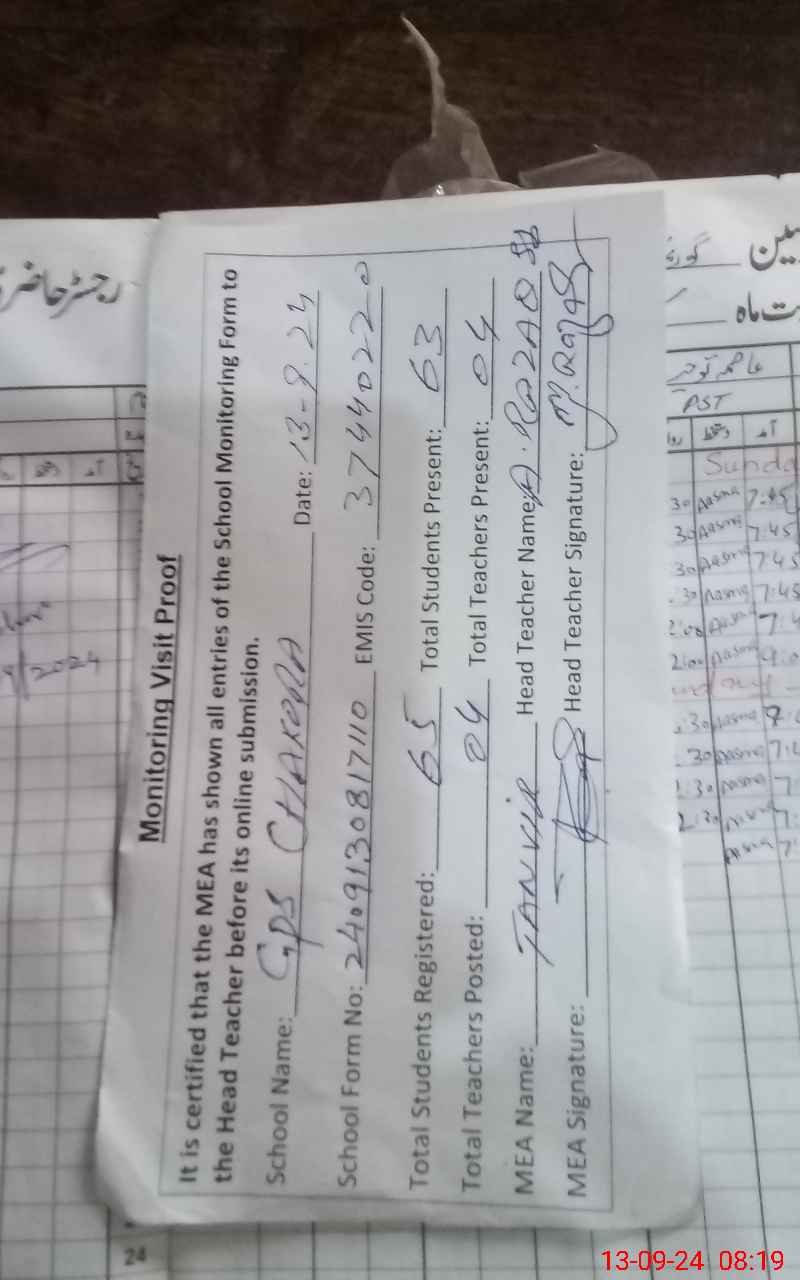 Monitoring Visit Proof
It is certified that the MEA has shown all entries of the School Monitoring Form to
the Head Teacher before its online submission.
School Name: GPS CHAKORA Date: 13-9-24
School Form No: 240913081 7110 EMIS Code: 37440220
Total Students Registered: 65 Total Students Present: 63
Total Teachers Posted: 04 Total Teachers Present: 04
MEA Name: TANVIR Head Teacher Name: A. RazAQ
MEA Signature: Head Teacher Signature:
رجسٹر حاضری
2024
24
PST
آمد
Sunda
30 Aasma 7:45
30 Aasma 7:45
30 Aasma 7:45
30 Aasma 7:45
2:00 Aasma
2:00 Aasma
30 Aasma
30 Aasma
30 Aasma
2:30 Aasma
Aasma
13-09-24 08:19